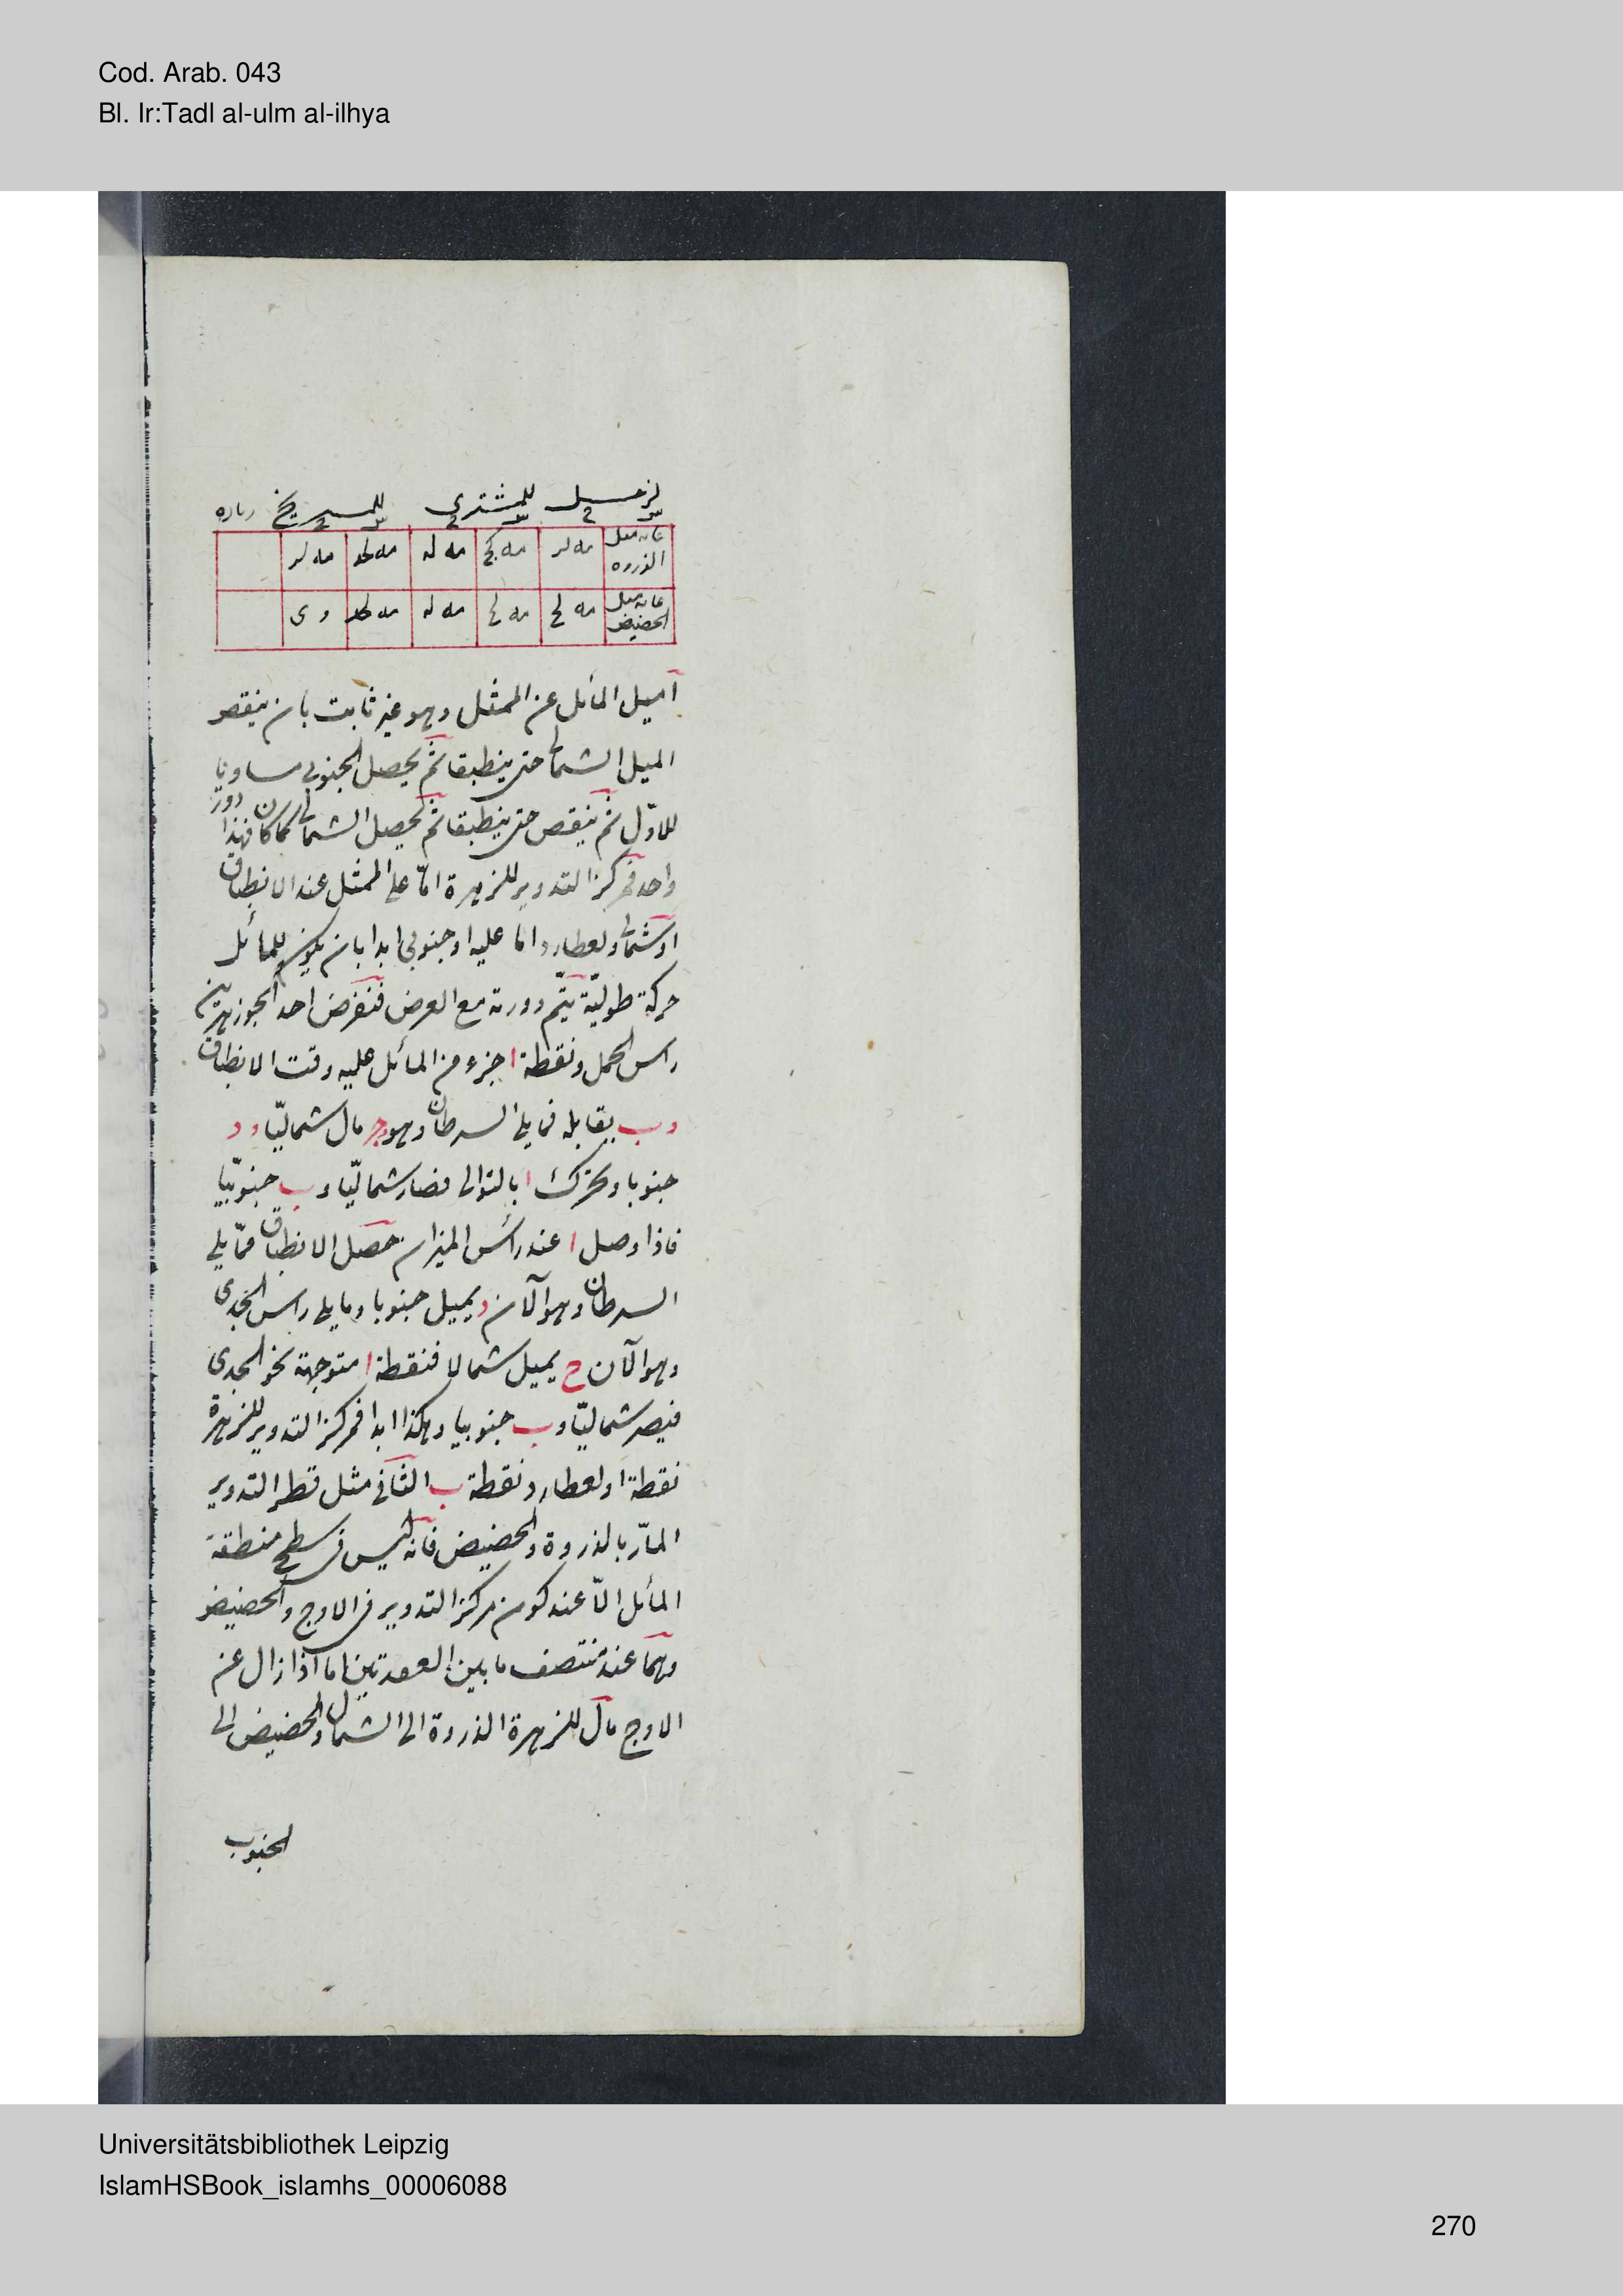 Cod. Arab. 043
Bl. Ir:Tadl al-ulm al-ilhya
لزحل للمشتري للمريخ
غايه ميل الذروه مه لر مه كح مه له مه لر
غايه ميل الحضيض مه لح مه لح مه له و ى
ا ميل المائل عن الممثل وهو غير ثابت بان ينقص
الميل الشمالى حتى ينطبقا ثم يحصل الجنوبى مساويا
للاوّل ثم ينقص حتى ينطبقا ثم يحصل الشمالى كما كان فهذا دور
واحد فمركز التدوير للزهرة امّا على الممثل عند الانطباق
او شمالى ولعطارد اما عليه او جنوبى ابدا بان يكون للمائل
حركة طوليّة يتمّ دورته مع العرض فنفرض احد الجوزهرين
راس الحمل ونقطة ا جزء من المائل عليه وقت الانطباق
و ب يقابله فما يلى السرطان وهو ج مال شماليّا و د
جنوبا وتحرك ا بالتوالى فصار شماليّا و ب جنوبيّا
فاذا وصل ا عند رأس الميزان حصل الانطباق فمّا يلى
السرطان وهو الآن د يميل جنوبا وما يلى راس الجدى
وهو الآن ج يميل شمالا فنقطة ا متوجهة نحو الجدى
فيصير شماليّا و ب جنوبيا وهكذا ابدا فمركز التدوير للزهرة
نقطة ا ولعطارد نقطة ب الثانى مثل قطر التدوير
المارّ بالذروة والحضيض فانه ليس فى سطح منطقة
المائل الّا عند كون مركز التدوير فى الاوج والحضيض
وهما عند منتصف ما بين العقدتين اما اذا زال عن
الاوج مال للزهرة الذروة الى الشمال والحضيض الى
الجنوب
Universitätsbibliothek Leipzig
IslamHSBook_islamhs_00006088
270